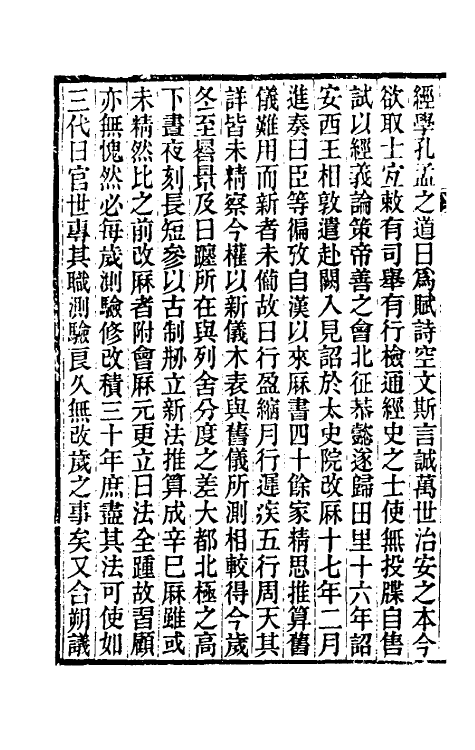 經學孔孟之道日爲賦詩空文斯言誠萬世治安之本今
欲取士宐敕有司舉有行檢通經史之士使無投牒自售
試以經義論策帝善之會北征恭懿遂歸田里十六年詔
安西王相敦遣赴闕入見詔於太史院改厤十七年二月
進奏曰臣等徧攷自漢以來厤書四十餘家精思推算舊
儀難用而新者未備故日行盈縮月行遲疾五行周天其
詳皆未精察今權以新儀木表與舊儀所測相較得今歲
冬至晷景及日躔所在與列舍分度之差大都北極之高
下晝夜刻長短參以古制剏立新法推算成辛巳厤雖或
未精然比之前改厤者附會厤元更立日法全踵故習顧
亦無愧然必每歲測驗修改積三十年庶盡其法可使如
三代日官世專其職測驗良久無改歲之事矣又合朔議